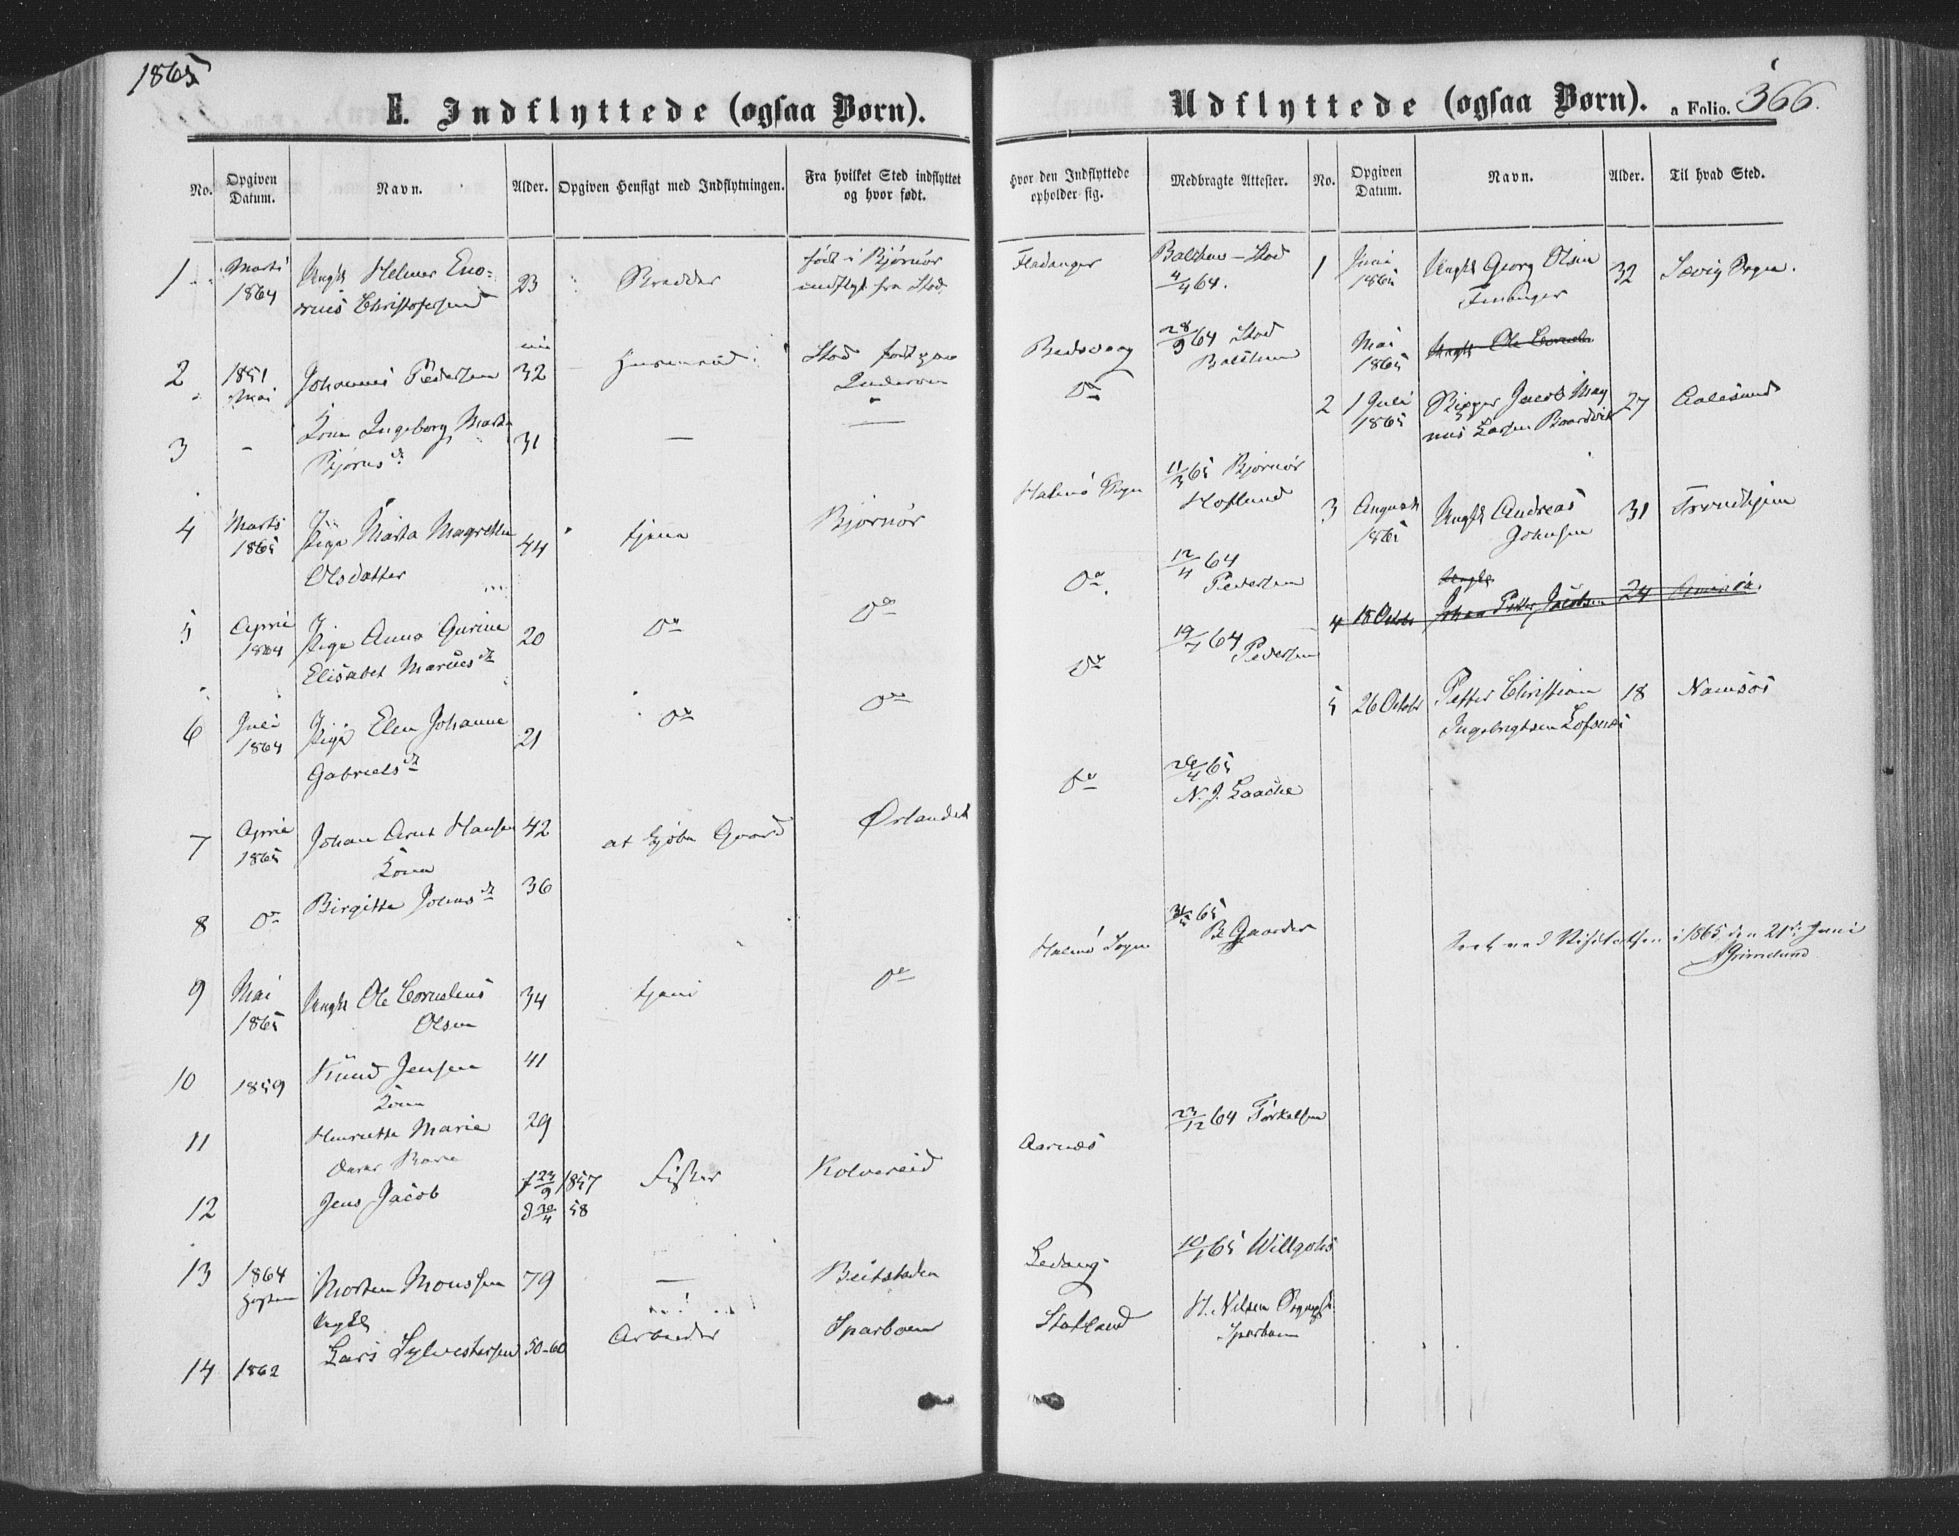 1865
E. Indflyttede (ogsaa Børn).
No.
Opgiven Datum.
Navn.
Alder.
Opgiven Hensigt med Indflytningen.
Fra hvilket Sted indflyttet
og hvor født.
1 Marts 1864 Ungk Helmer Eno-
Christofersen 23
født i Bjørnør
indflyt fra Stod
2 1851 Mai Johannes Pedersen 32 Huusmand Stod født paa
Inderøen
3 - Kone Ingeborg Marta
Bjørnsd. 31 — —
4 Marts 1865 Pige Marta Magrethe
Olsdatter 44 tjene Bjørnør
5 April 1864 Pige Anna Gurine
Elisabet Marcusd. 20 Do Do
6 Juli 1864 Pige Elen Johanne
Gabrielsd. 21 Do Do
7 April 1865 Johan Arnt Hansen 42 at kjøbe Gaard Ørlandet
Kone
8 Do Birgitte Johnsd. 36
9 Mai 1865 Ungk Ole Cornelius
Olsen 34 tjene Do
10 1859 Knud Jensen 41
Kone
11 Henriette Marie 29
Deres Barn
12 Jens Jacob f 23/9 1857 Fisker Kolvereid
d 30/4 58
13 1864 Høsten Morten Monssen 79 — Beitstaden
Ungk
14 1862 Lars Sylvestersen 50-60 Arbeider Sparboen
Udflyttede (ogsaa Børn).
a Folio. 366.
Hvor den Indflyttede
opholder sig.
Medbragte Attester.
No.
Opgiven Datum.
Navn.
Alder.
Til hvad Sted.
Fladanger Balchen - Stod
4/4 64.
1 Juni 1865 Ungk Georg Olsen
32 Sævig Sogn.
28/9 64 Stod
Balchen
Do
Mai 1865 Ungk Ole Cornelius
2 1 Juli 1865 Jacob Mag
nus Larsen 27 Aalesund
Halmø Sogn 11/3 65 Bjørnør
Hoflund
3 August 1865 Ungk Andreas
Johnsen 31 Trondhjem
Do. 12/4 64
Pedersen
Ungk
4 18 Octobr Johan Petter Jacobsen 24
Do 19/7 64
Pedersen
5 26 Octobr Petter Christian
Ingebrigtsen 18 Namsos
Do 24/4 65
N. J. Laache
Halmø Sogn 65
B. Gaarder
ved Visitatsen i 1865 den 21de Juni
Grimelund
Aarnæs 23/12 64 Torkelsen
10/1 65 Willgohs
Statland H. Nilsen
Sparboen